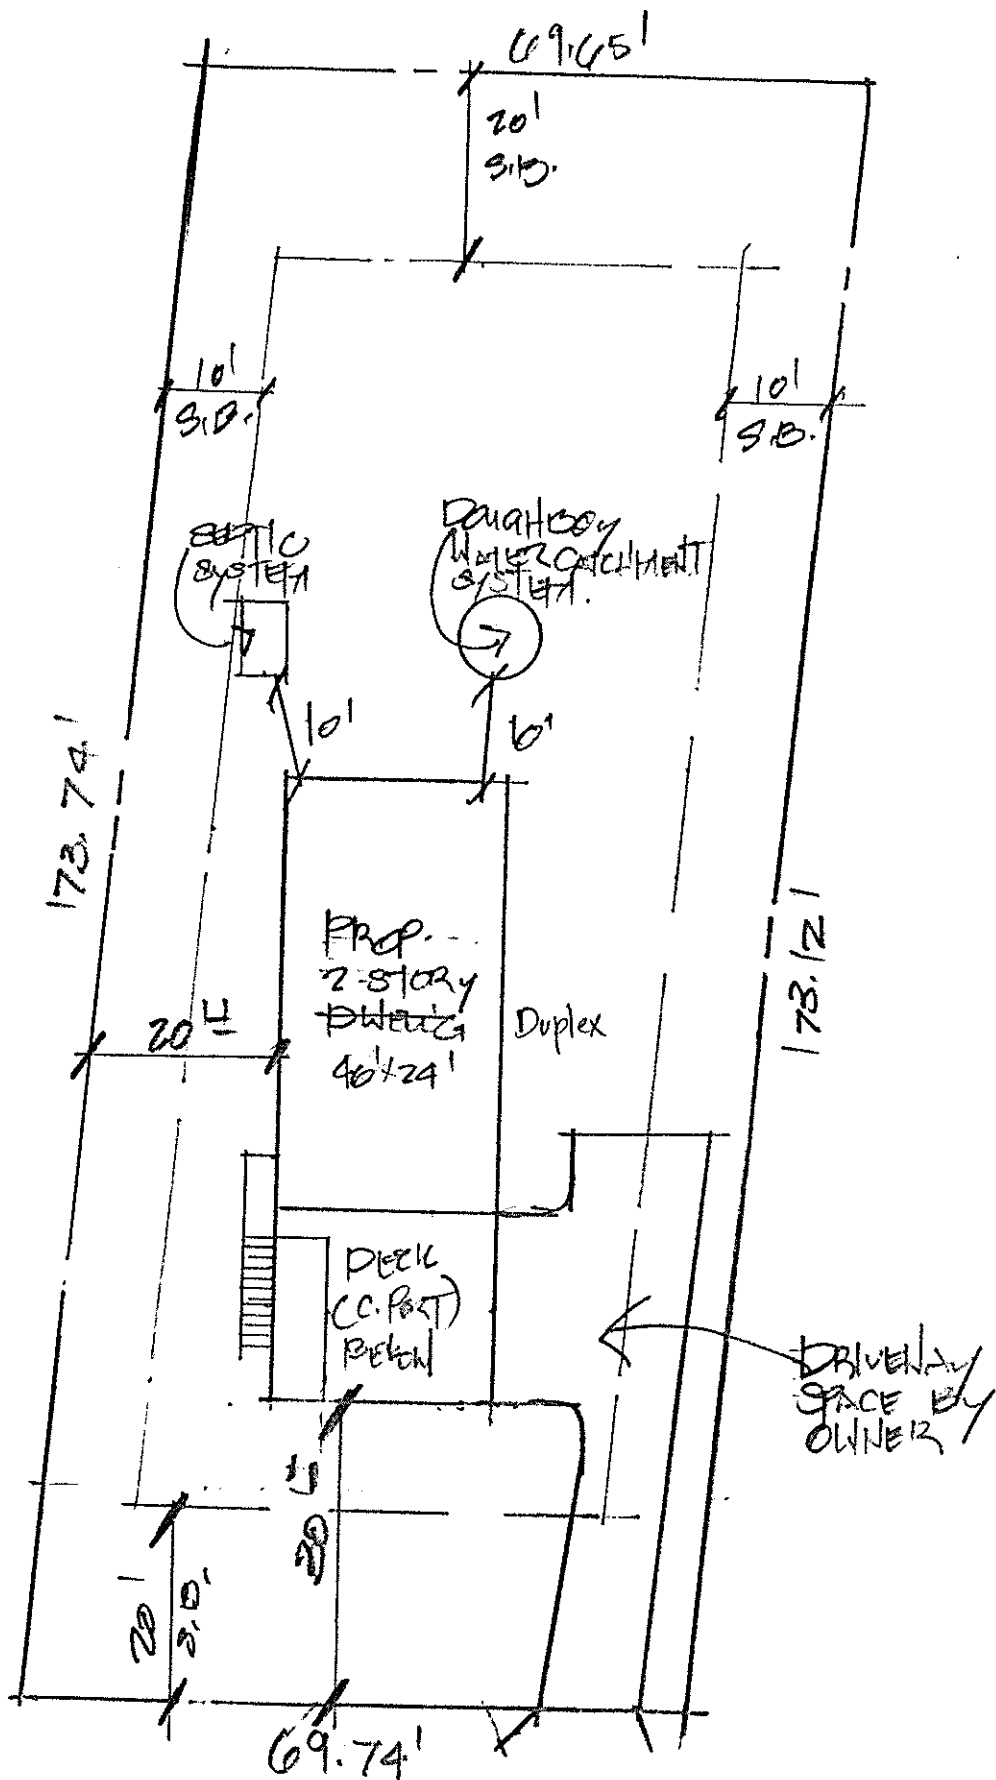 69.65'
20'
S.B.
10'
S.B.
10'
S.B.
SEPTIC
SYSTEM
DOUGHBOY
WATER CATCHMENT
SYSTEM.
10'
6'
173.74'
PROP.
2-STORY
DWELL'G
46'x24'
Duplex
20'
173.12'
DECK
(C.PORT)
BELOW
DRIVEWAY
SPACE BY
OWNER
20'
S.B.'
69.74'